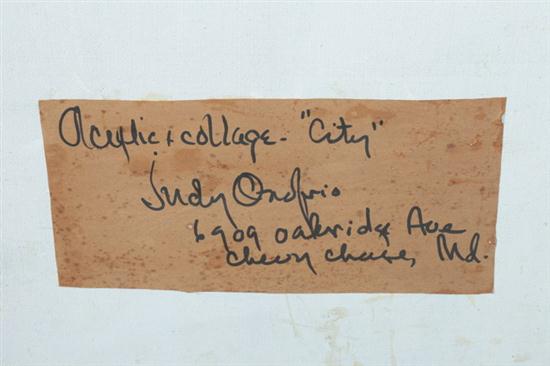 Acrylic + collage - "City"
Judy Onofrio
6909 oakridge Ave
chevy chase, Md.